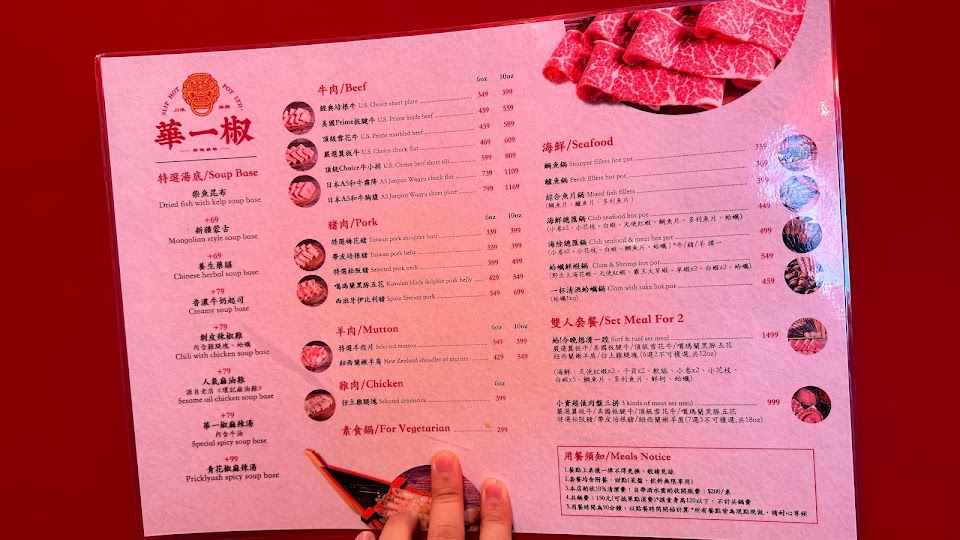 SLIF HOT POT LTD.
川味
麻辣
華一椒
特選湯底/Soup Base
柴魚昆布
Dried fish with kelp soup base
+69
新疆蒙古
Mongolian style soup base
+69
養生藥膳
Chinese herbal soup base
+79
香濃牛奶起司
Creamy soup base
+79
剝皮辣椒雞
內含雞腿塊、蛤蠣
Chili with chicken soup base
+79
人氣麻油雞
源自老店《環記麻油雞》
Sesame oil chicken soup base
+79
華一椒麻辣湯
內含牛油
Special spicy soup base
+99
青花椒麻辣湯
Pricklyash spicy soup base
牛肉/Beef 6oz 10oz
經典培根牛 U.S. Choice short plate 349 399
美國Prime板腱牛 U.S. Prime blade beef 439 559
頂級雪花牛 U.S. Prime marbled beef 459 589
嚴選翼板牛 U.S. Choice chuck flat 469 609
頂級Choice牛小排 U.S. Choice beef short rib 599 809
日本A5和牛霜降 A5 Janpan Wagyu chuck flat 739 1109
日本A5和牛胸腹 A5 Janpan Wagyu short plate 799 1169
豬肉/Pork 6oz 10oz
特選梅花豬 Taiwan pork shoulder butt 339 399
帶皮培根豬 Taiwan pork belly 339 399
特選松阪豬 Selected pork neck 399 499
噶瑪蘭黑豚五花 Kavalan black dolphin pork belly 429 549
西班牙伊比利豬 Spain Iberian pork 549 699
羊肉/Mutton 6oz 10oz
特選羊肉片 Selected mutton 349 399
紐西蘭嫩羊肩 New Zealand shoudler of mutton 429 549
雞肉/Chicken 6oz
仿土雞腿塊 Selected drumstick 399
素食鍋/For Vegetarian 299
海鮮/Seafood
鯛魚鍋 Snapper fillets hot pot 359
鱸魚鍋 Perch fillets hot pot 369
綜合魚片鍋 Mixed fish fillets 399
(鯛魚片、鱸魚片、多利魚片)
海鮮總匯鍋 Club seafood hot pot 449
(小卷x2、小花枝、白蝦、天使紅蝦、鯛魚片、多利魚片、蛤蠣)
海陸總匯鍋 Club seafood & meat hot pot 499
(小卷x2、小花枝、白蝦、鯛魚片、蛤蠣)*牛/豬/羊 擇一
蛤蠣鮮蝦鍋 Clam & Shrimp hot pot 549
(野生大海花蝦、天使紅蝦、霸王大草蝦、草蝦x2、白蝦x2、蛤蠣)
一杯清酒蛤蠣鍋 Clam with sake hot pot 459
(蛤蠣1kg)
雙人套餐/Set Meal For 2
蛤!今晚想清一段 Surf & tarf set meal 1499
嚴選翼板牛/美國板腱牛/頂級雪花牛/噶瑪蘭黑豚五花
紐西蘭嫩羊肩/仿土雞腿塊 (6選2不可複選,共12oz)
(海鮮:天使紅蝦x2、干貝x2、軟絲、小卷x2、小花枝、
白蝦x5、鯛魚片、多利魚片、鮮蚵、蛤蠣)
小資超值肉盤三拼 3 kinds of meat set meal 999
嚴選翼板牛/美國板腱牛/頂級雪花牛/噶瑪蘭黑豚五花
特選松阪豬/帶皮培根豬/紐西蘭嫩羊肩(7選3不可複選,共18oz)
用餐須知/Meals Notice
1.餐點上桌後一律不得更換,敬請見諒
2.套餐均含附餐、甜點(菜盤、飲料無限享用)
3.本店酌收10%清潔費,自帶酒水需酌收開瓶費:$200/桌
4.共鍋費:150元(可抵單點消費)*孩童身高120以下,不計共鍋費
5.用餐時間為90分鐘,以點餐時間開始計算*所有餐點皆為現點現做,請耐心等候